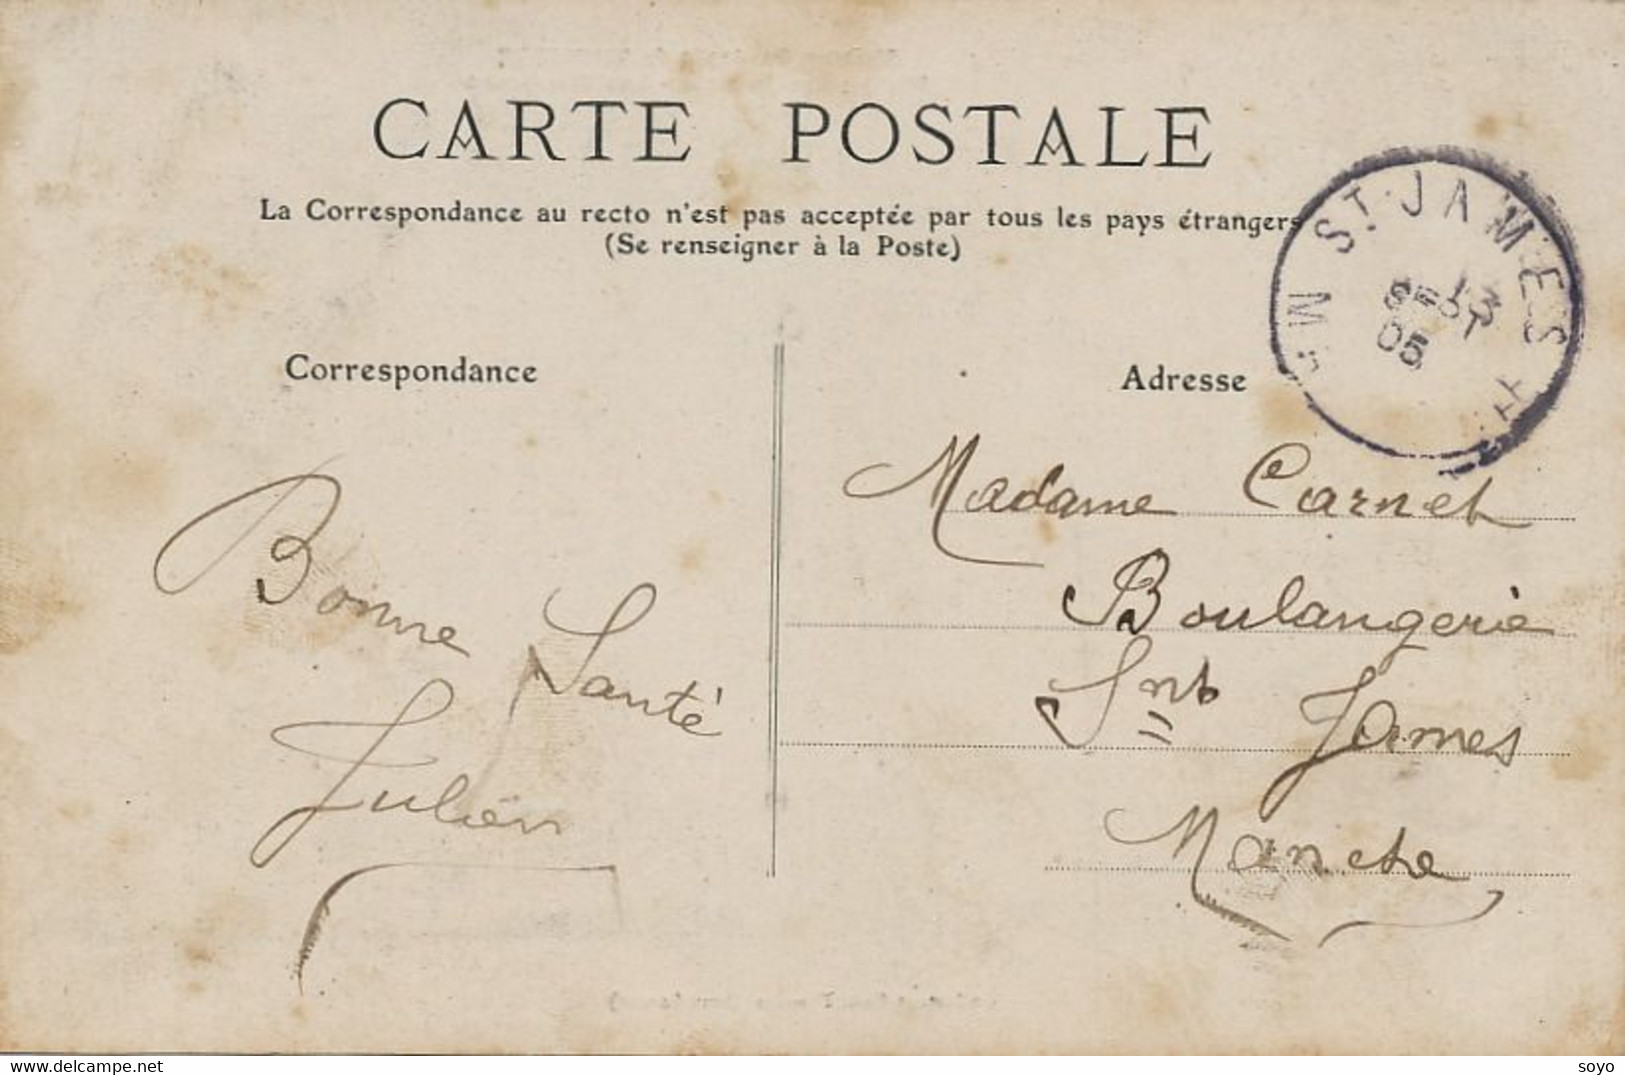 CARTE POSTALE
La Correspondance au recto n'est pas acceptée par tous les pays étrangers
(Se renseigner à la Poste)
ST JAMES
13
SEPT
05
Correspondance
Adresse
Bonne Santé
Julien
Madame Carnet
Boulangerie
Snt James
Manche
soyo